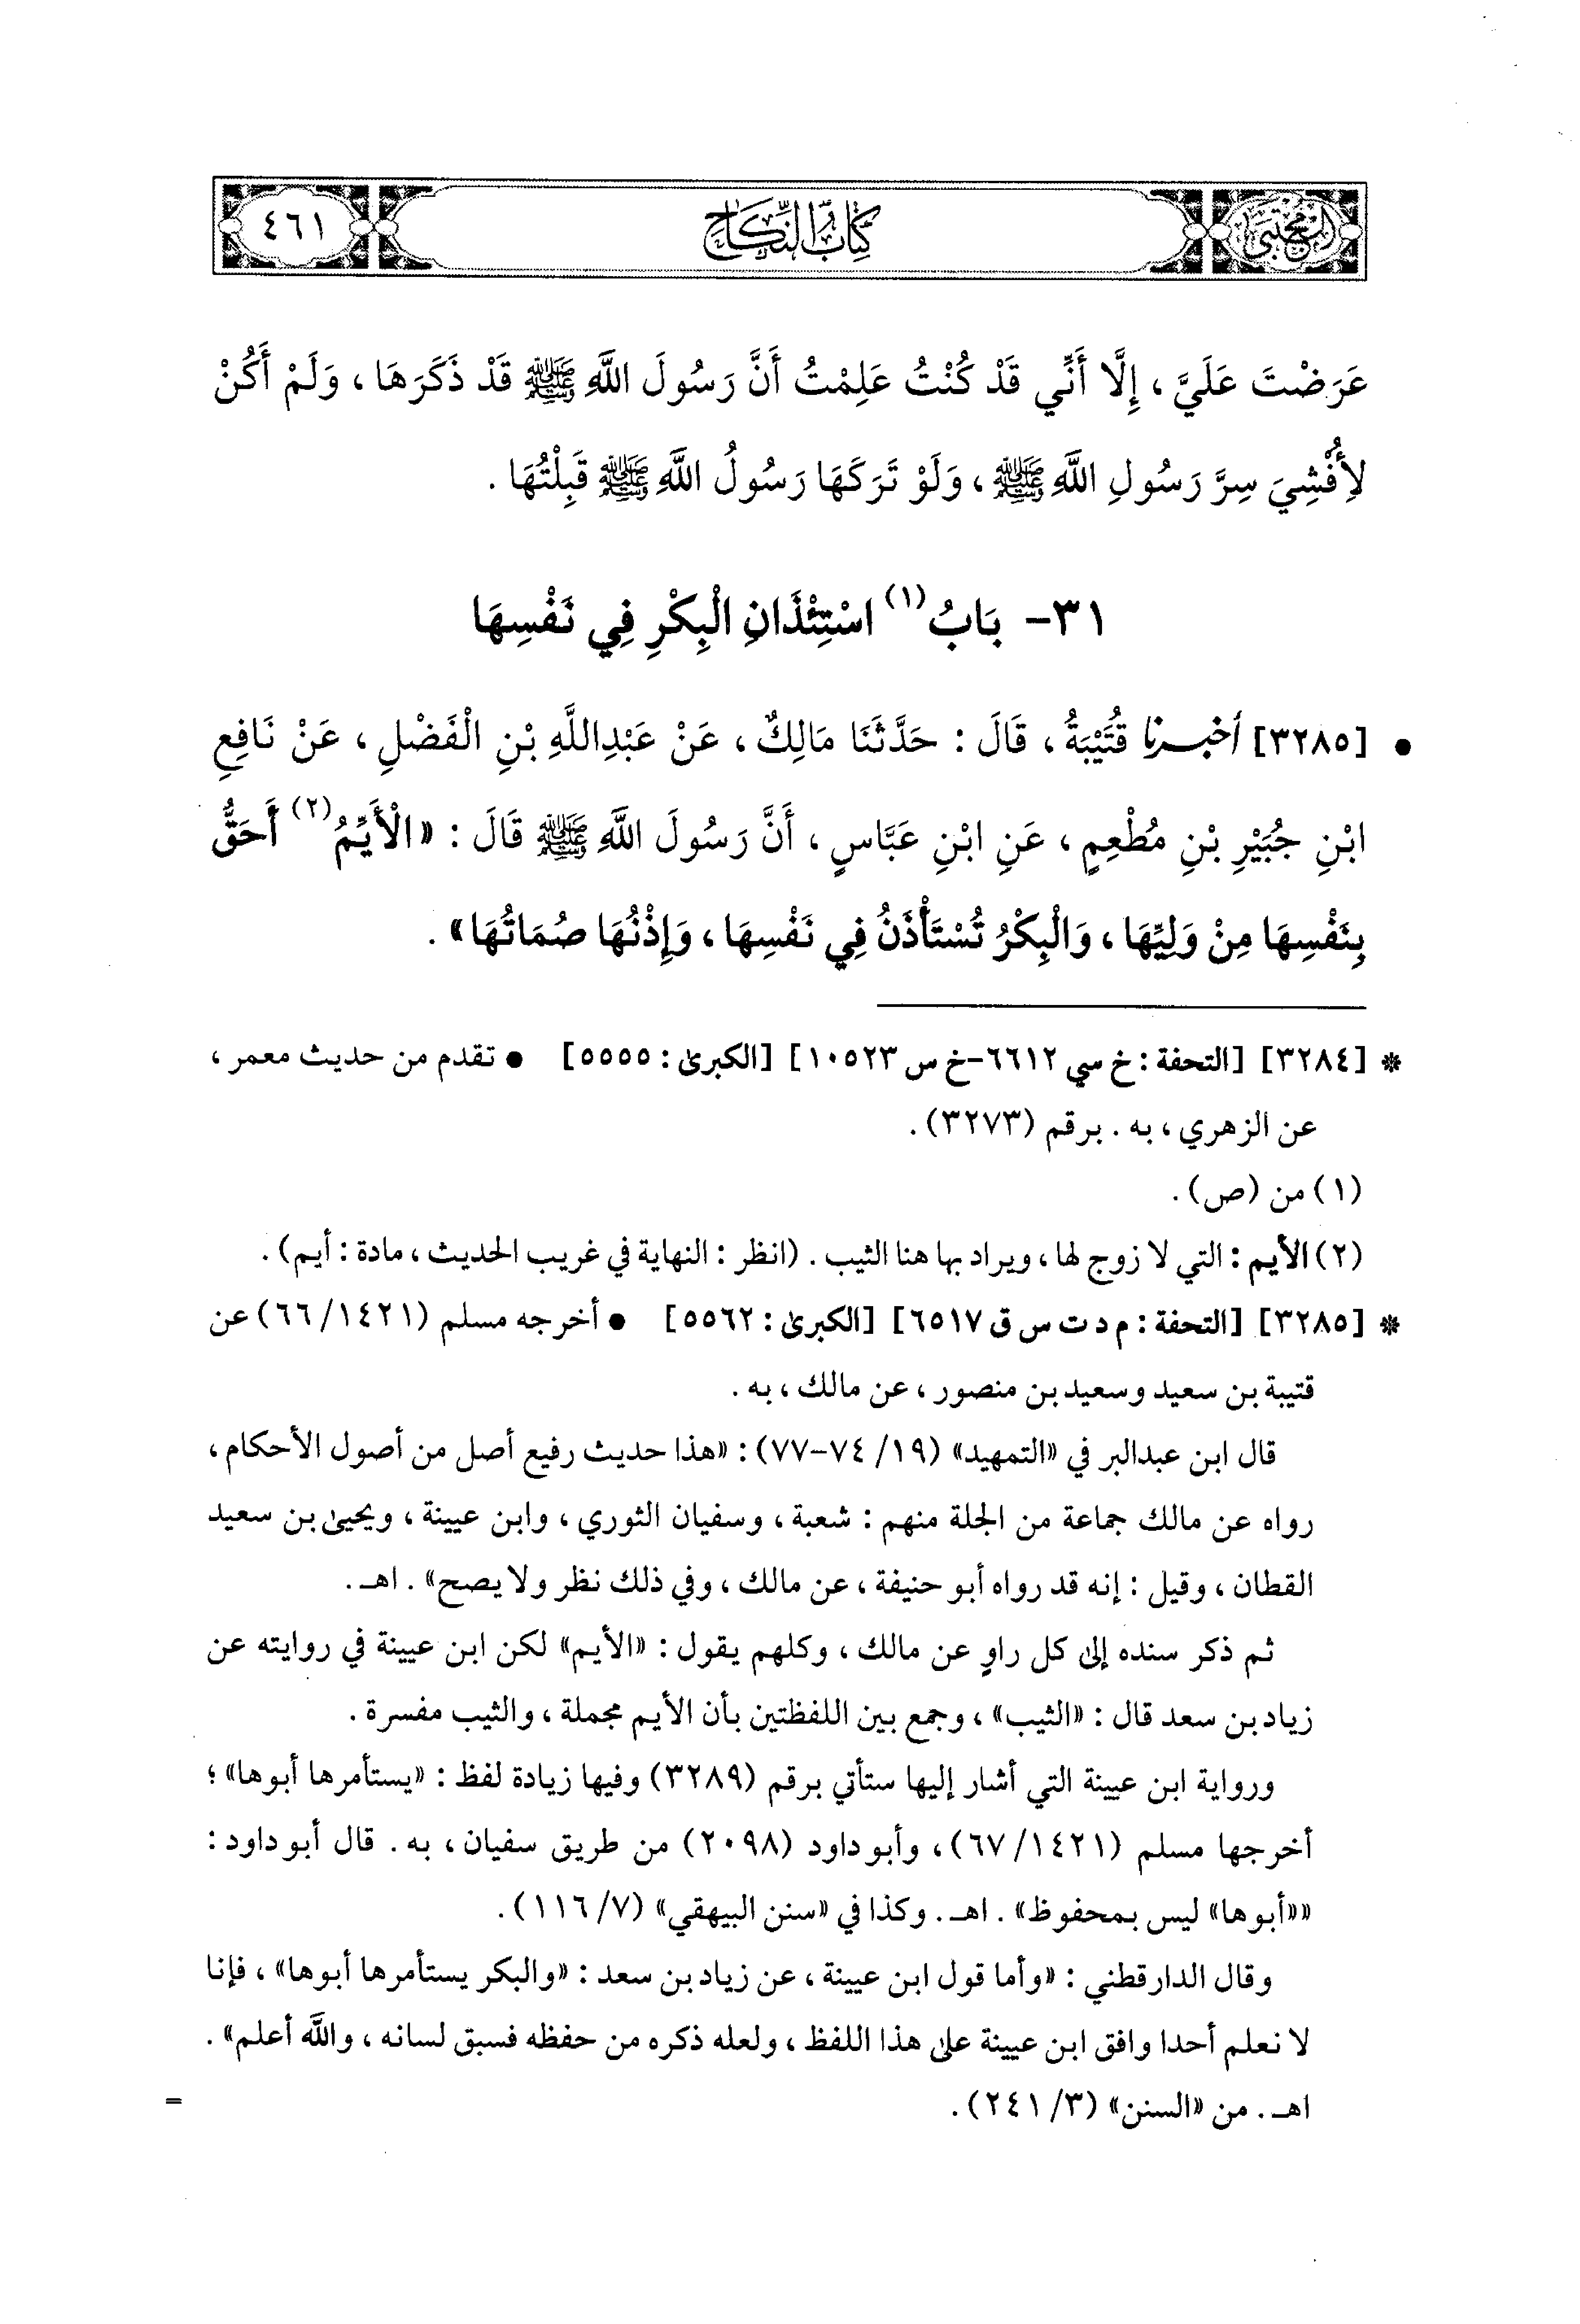 المجتبى
كتاب النكاح
٤٦١
عَرَضْتَ عَلَيَّ ، إِلَّا أَنِّي قَدْ كُنْتُ عَلِمْتُ أَنَّ رَسُولَ اللَّهِ ﷺ قَدْ ذَكَرَهَا ، وَلَمْ أَكُنْ
لِأُفْشِيَ سِرَّ رَسُولِ اللَّهِ ﷺ ، وَلَوْ تَرَكَهَا رَسُولُ اللَّهِ ﷺ قَبِلْتُهَا .
٣١- بَابُ (١) اسْتِئْذَانِ الْبِكْرِ فِي نَفْسِهَا
• [٣٢٨٥] أخبرنا قُتَيْبَةُ ، قَالَ : حَدَّثَنَا مَالِكٌ ، عَنْ عَبْدِاللَّهِ بْنِ الْفَضْلِ ، عَنْ نَافِعِ
ابْنِ جُبَيْرِ بْنِ مُطْعِمٍ ، عَنِ ابْنِ عَبَّاسٍ ، أَنَّ رَسُولَ اللَّهِ ﷺ قَالَ : «الْأَيِّمُ (٢) أَحَقُّ
بِنَفْسِهَا مِنْ وَلِيِّهَا ، وَالْبِكْرُ تُسْتَأْذَنُ فِي نَفْسِهَا ، وَإِذْنُهَا صُمَاتُهَا» .
* [٣٢٨٤] [التحفة : خ سي ٦٦١٢-خ س ١٠٥٢٣] [الكبرى : ٥٥٥٥] • تقدم من حديث معمر ،
عن الزهري ، به . برقم (٣٢٧٣) .
(١) من (ص) .
(٢) الأيم : التي لا زوج لها ، ويراد بها هنا الثيب . (انظر : النهاية في غريب الحديث ، مادة : أيم) .
* [٣٢٨٥] [التحفة : م د ت س ق ٦٥١٧] [الكبرى : ٥٥٦٢] • أخرجه مسلم (١٤٢١/ ٦٦) عن
قتيبة بن سعيد وسعيد بن منصور ، عن مالك ، به .
قال ابن عبدالبر في «التمهيد» (١٩/ ٧٤-٧٧) : «هذا حديث رفيع أصل من أصول الأحكام ،
رواه عن مالك جماعة من الجلة منهم : شعبة ، وسفيان الثوري ، وابن عيينة ، ويحيى بن سعيد
القطان ، وقيل : إنه قد رواه أبو حنيفة ، عن مالك ، وفي ذلك نظر ولا يصح» . اهـ .
ثم ذكر سنده إلى كل راوٍ عن مالك ، وكلهم يقول : «الأيم» لكن ابن عيينة في روايته عن
زياد بن سعد قال : «الثيب» ، وجمع بين اللفظتين بأن الأيم مجملة ، والثيب مفسرة .
ورواية ابن عيينة التي أشار إليها ستأتي برقم (٣٢٨٩) وفيها زيادة لفظ : «يستأمرها أبوها» ؛
أخرجها مسلم (١٤٢١/ ٦٧) ، وأبو داود (٢٠٩٨) من طريق سفيان ، به . قال أبو داود :
««أبوها» ليس بمحفوظ» . اهـ . وكذا في «سنن البيهقي» (٧/ ١١٦) .
وقال الدارقطني : «وأما قول ابن عيينة ، عن زياد بن سعد : «والبكر يستأمرها أبوها» ، فإنا
لا نعلم أحدا وافق ابن عيينة على هذا اللفظ ، ولعله ذكره من حفظه فسبق لسانه ، والله أعلم» .
اهـ . من «السنن» (٣/ ٢٤١) .
=